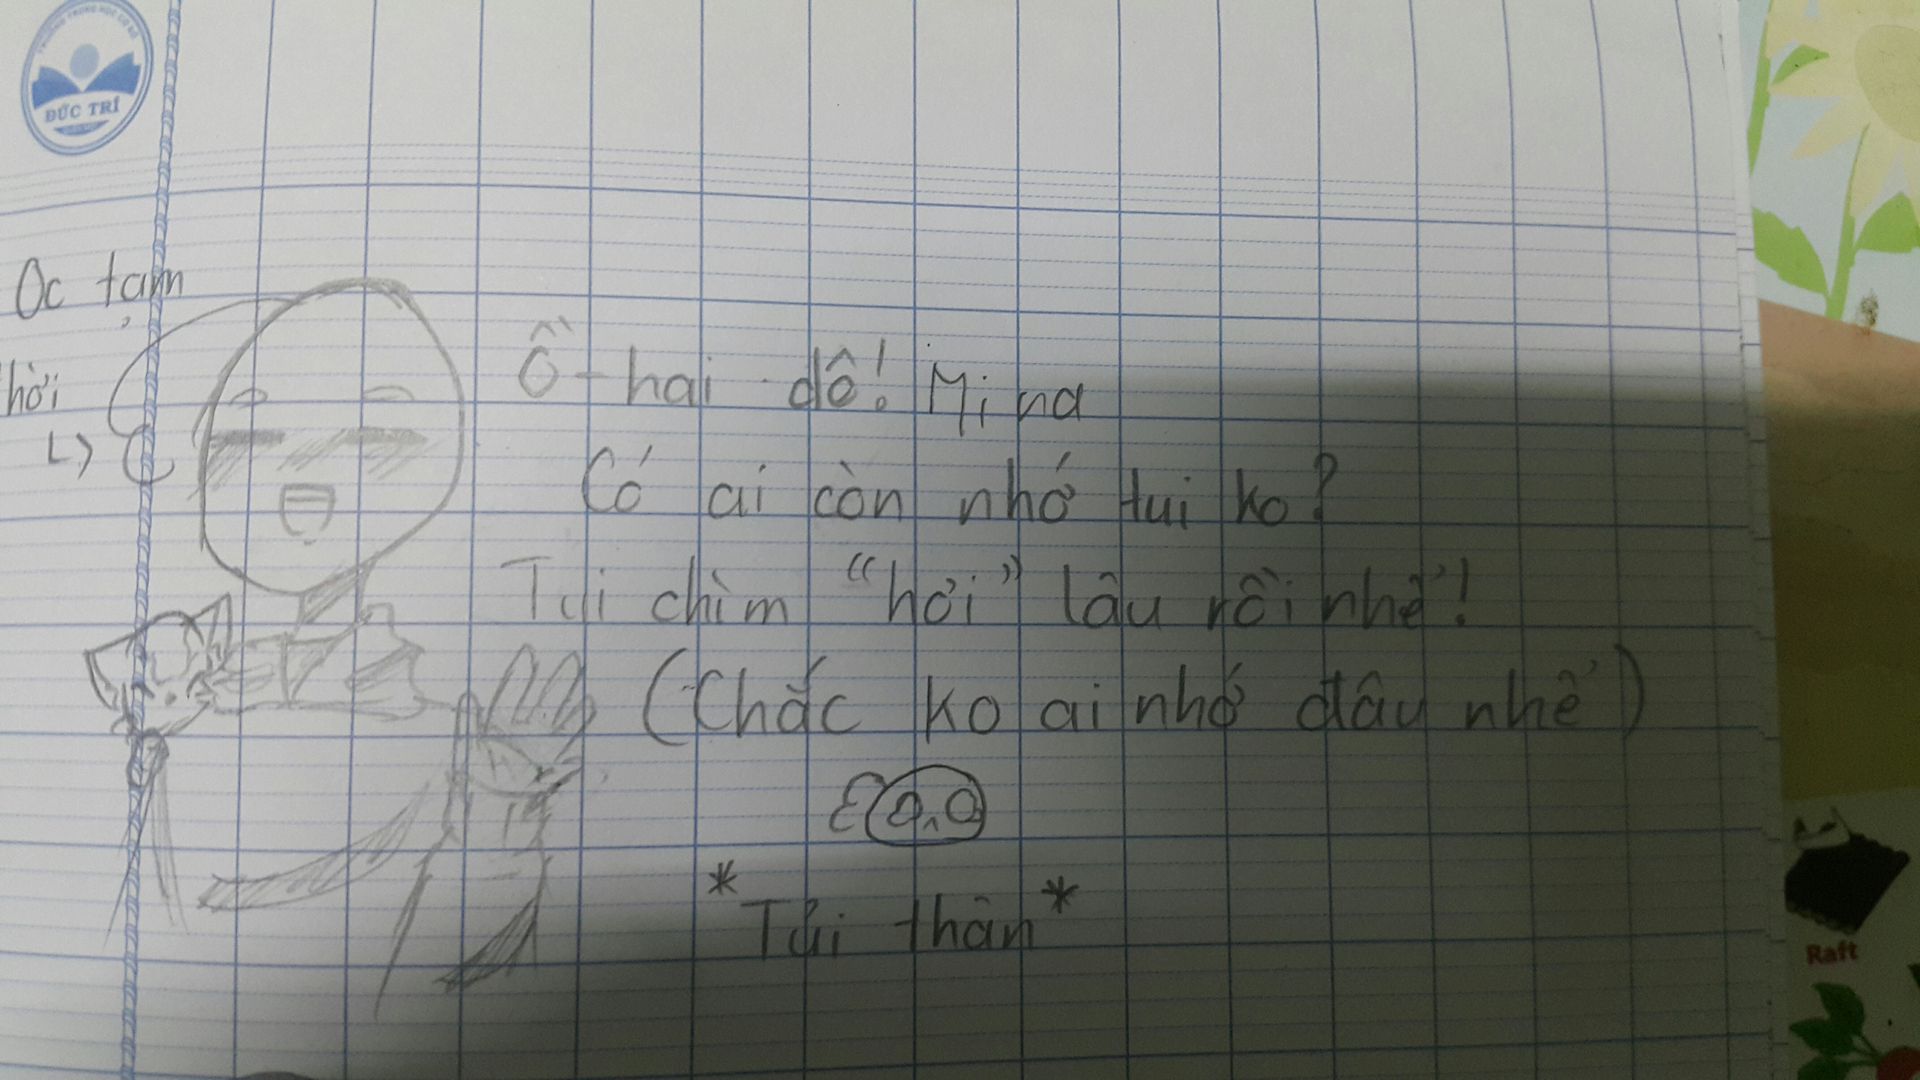 ĐỨC TRÍ
Oc tạm
hời
Ồ-hai-dô! Mina
Có ai còn nhớ tui ko?
Tui chìm "hơi" lâu rồi nhể!
(Chắc ko ai nhớ đâu nhể)
*Tủi thân*
Raft